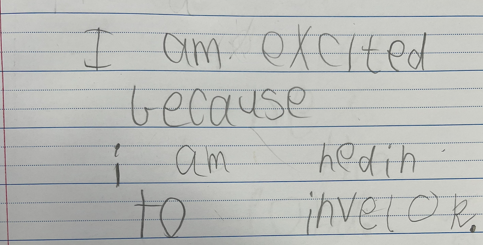 I am excited
because
i am hedin
to invelok.